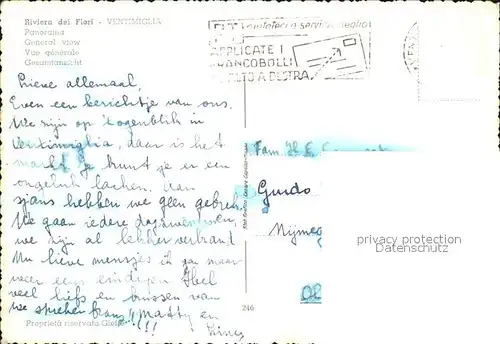 Riviera dei Fiori - VENTIMIGLIA
Panorama
General view
Vue générale
Gesamtansicht
APPLICATE I
FRANCOBOLLI
ALTO A DESTRA
Lieve allemaal,
Even een berichtje van ons.
We zijn op 't ogenblik in
Ventimiglia, daar is het
markt je kunt je er een
ongeluk lachen. Aan
sjans hebben we geen gebrek
We gaan iedere dag zwemmen,
we zijn al lekker verbrand
Nu lieve mensjes ik ga maar
weer eens eindigen
veel liefs en van
we spreken frans!! Matty en
!!!
Fam. H.
Guido
Nijmeg
246
Proprietà riservata
privacy protection
Datenschutz